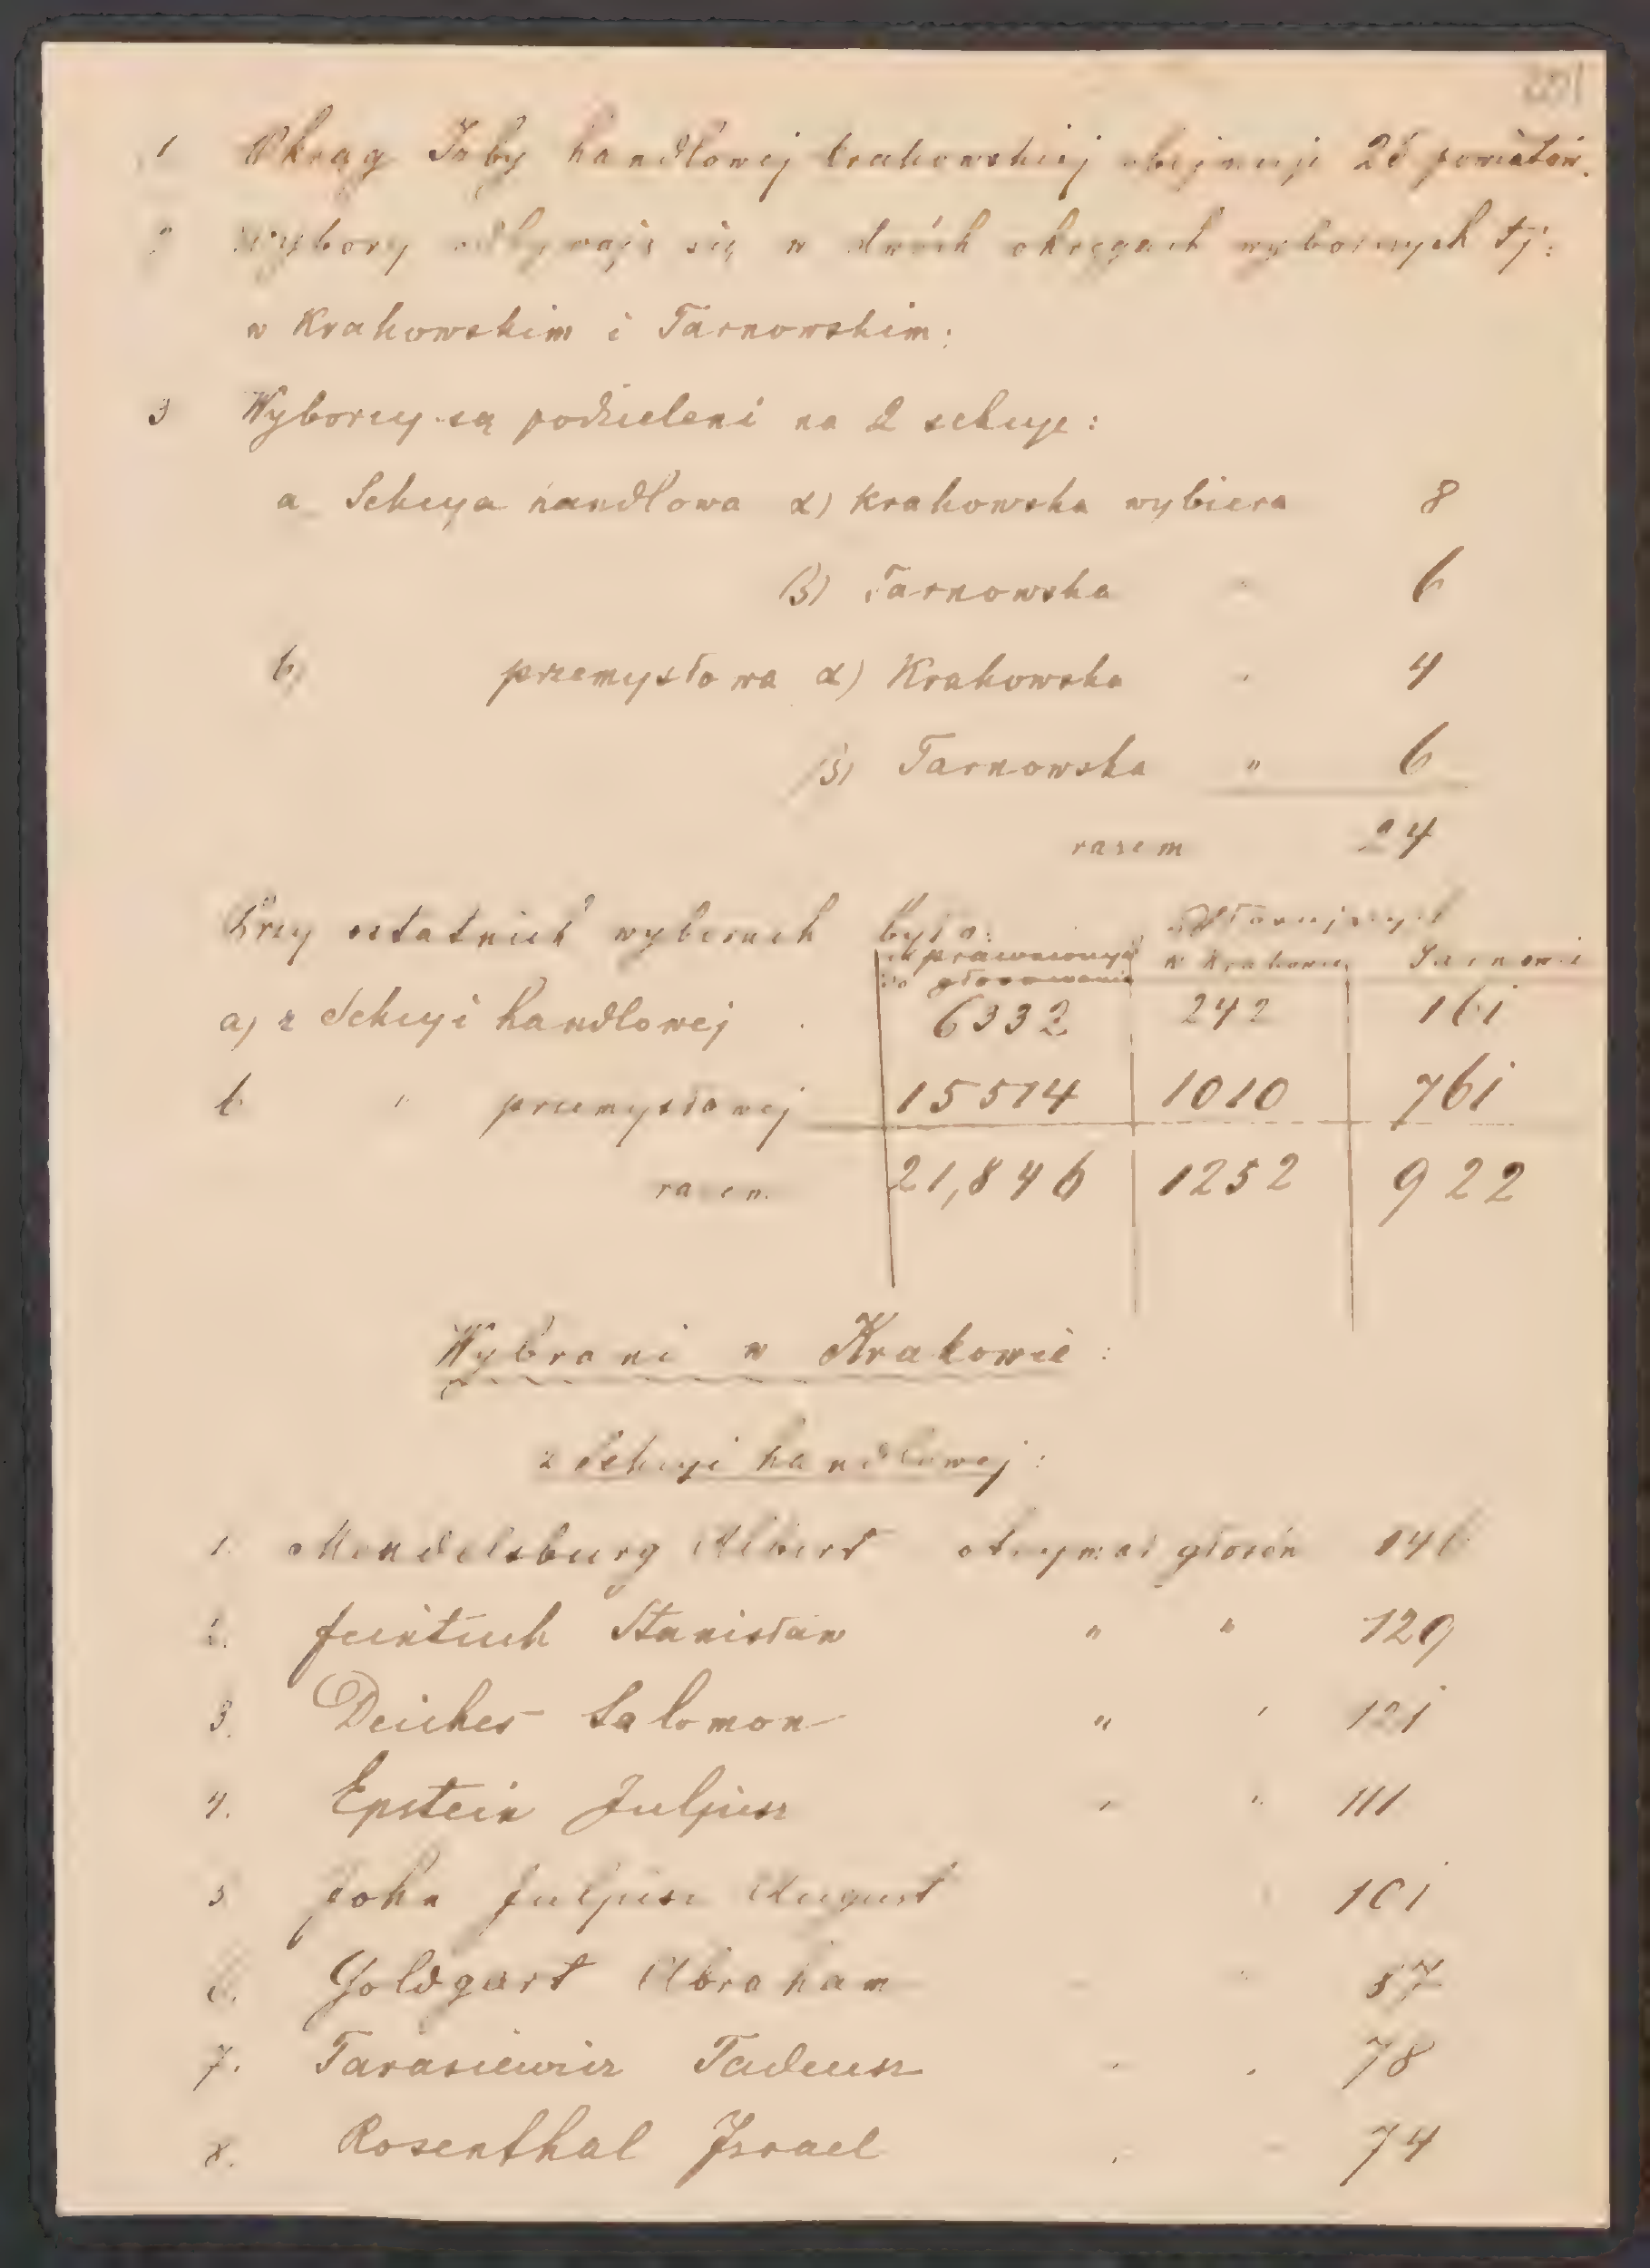 1 Okrąg Izby handlowej krakowskiej obejmuje powiatów.
2 Wybory odbywają się w dwóch okręgach wyborczych tj:
w Krakowskim i Tarnowskim:
3 Wyborcy są podzieleni na 2 sekcye:
a Sekcya handlowa α) Krakowska wybiera 8
β) Tarnowska " 6
b) przemysłowa α) Krakowska " 4
β) Tarnowska " 6
razem 24
Przy ostatnich wyborach było: głosujących
uprawnionych w Krakowie Tarnowie
do głosowania
a) z Sekcyi handlowej 6332 242 161
b " przemysłowej 15514 1010 761
razem 21,846 1252 922
Wybrani w Krakowie:
z Sekcyi handlowej:
1. Mendelsburg Albert otrzymał głosów 146
2. Feintuch Stanisław " " 129
3. Deiches Salomon " " 121
4. Epstein Juljusz " " 111
5 John Juljusz August " 101
6. Goldgart Abraham " "
7. Tarasiewicz Tadeusz " " 78
8. Rosenthal Israel " " 74